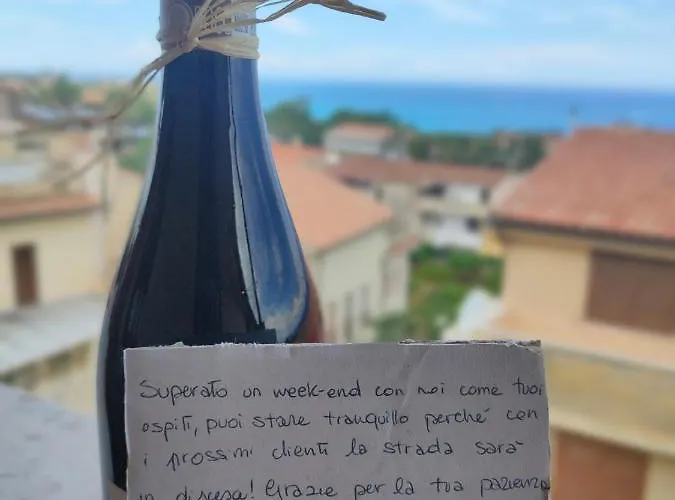 Superato un week-end con noi come tuoi
ospiti, puoi stare tranquillo perché con
i prossimi clienti la strada sarà
in discesa! Grazie per la tua pazienza